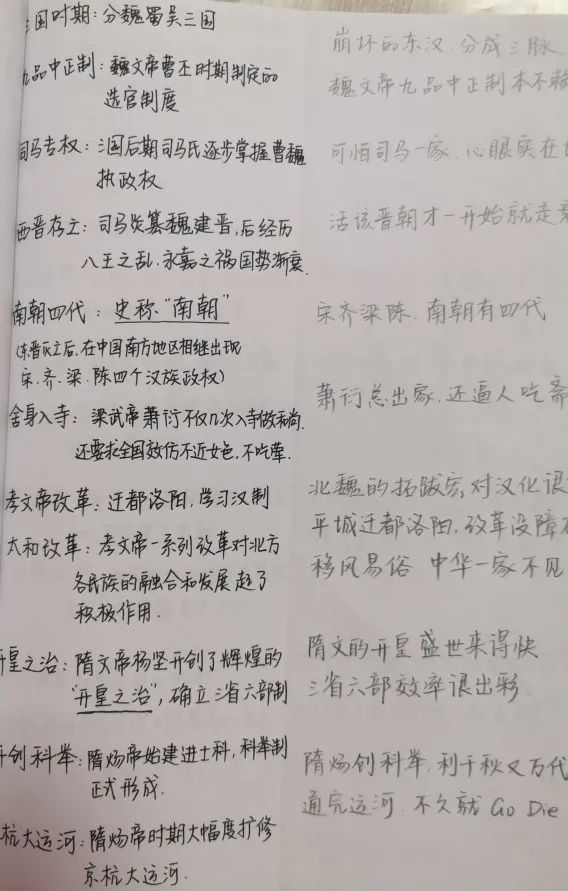 国时期：分魏蜀吴三国
九品中正制：魏文帝曹丕时期制定的
选官制度
司马专权：三国后期司马氏逐步掌握曹魏
执政权
西晋存立：司马炎篡魏建晋，后经历
八王之乱、永嘉之祸国势渐衰.
南朝四代：史称“南朝”
(东晋灭之后，在中国南方地区相继出现
宋、齐、梁、陈四个汉族政权)
舍身入寺：梁武帝萧衍不仅几次入寺做和尚.
还要求全国效仿不近女色，不吃荤.
孝文帝改革：迁都洛阳，学习汉制
太和改革：孝文帝一系列改革对北方
各民族的融合和发展起了
积极作用.
开皇之治：隋文帝杨坚开创了辉煌的
“开皇之治”，确立三省六部制
开创科举：隋炀帝始建进士科，科举制
正式形成.
杭大运河：隋炀帝时期大幅度扩修
京杭大运河.
崩坏的东汉、分成三脉、
魏文帝九品中正制本不赖
可怕司马一家、心眼实在
活该晋朝才一开始就走衰
宋齐梁陈、南朝有四代
萧衍总出家，还逼人吃斋
北魏的拓跋宏，对汉化很
平城迁都洛阳，改革没障
移风易俗 中华一家不见
隋文的开皇盛世来得快
三省六部效率很出彩.
隋炀创科举、利千秋又万代
通完运河、不久就 Go Die